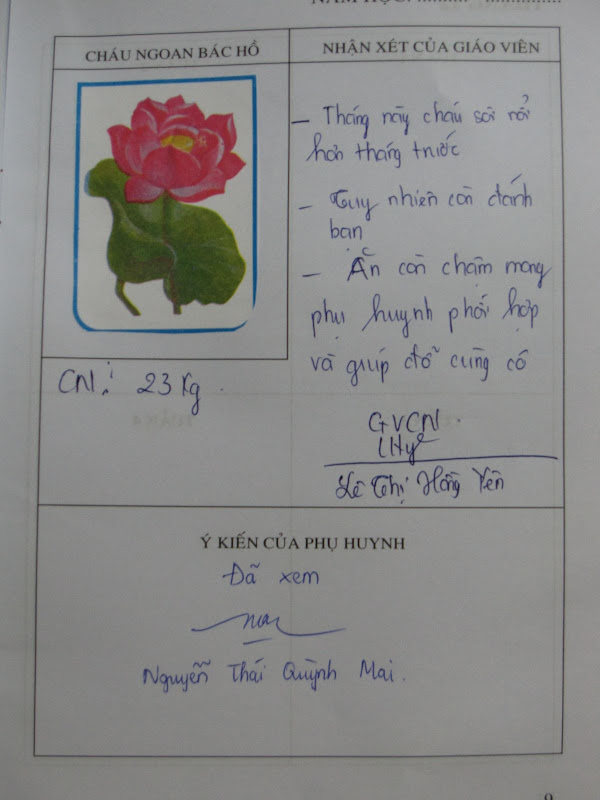 NĂM HỌC: .......... - ..............
CHÁU NGOAN BÁC HỒ
NHẬN XÉT CỦA GIÁO VIÊN
– Tháng này cháu sôi nổi
hơn tháng trước
– Tuy nhiên còn đánh
bạn
– Ăn còn chậm mong
phụ huynh phối hợp
và giúp đỡ cùng cô
CN: 23 Kg.
GVCN
Lê Thị Hồng Yên
Ý KIẾN CỦA PHỤ HUYNH
Đã xem
Nguyễn Thái Quỳnh Mai.
9